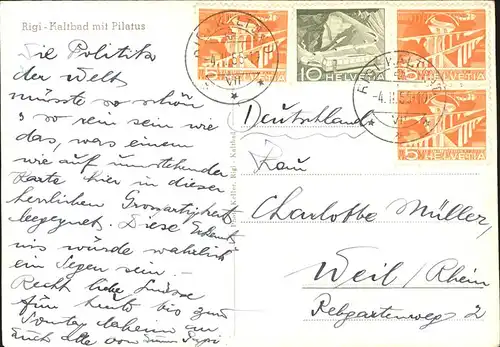 Rigi-Kaltbad mit Pilatus
Die Politik
der Welt
müsste so schön
so rein sein wie
das, was einem
wie auf umstehender
Karte hier in dieser
herrlichen Grossartigkeit
begegnet. Diese
uns würde wahrlich
ein Segen sein. –
Recht liebe Grüsse
für heute bis zum
Sonntag daheim
euch alle von
Deutschland
Frau
Charlotte Müller,
Weil/Rhein
Rebgartenweg 2
HELVETIA
5
10
HELVETIA
5
HELVETIA
5
HELVETIA
RIGI-KALTBAD